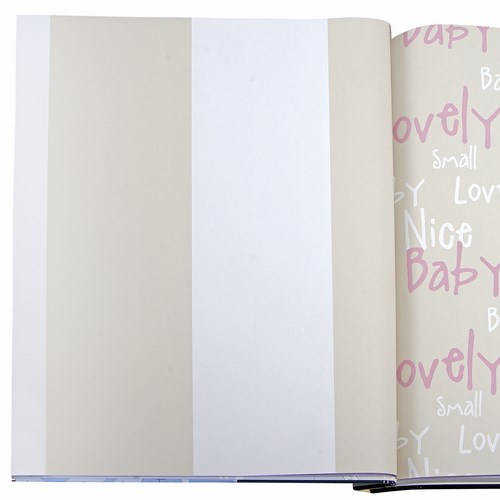 Baby
Ba
Lovely
Small
by Lov
Nice
Baby
B
Lovely
Small
by Lov